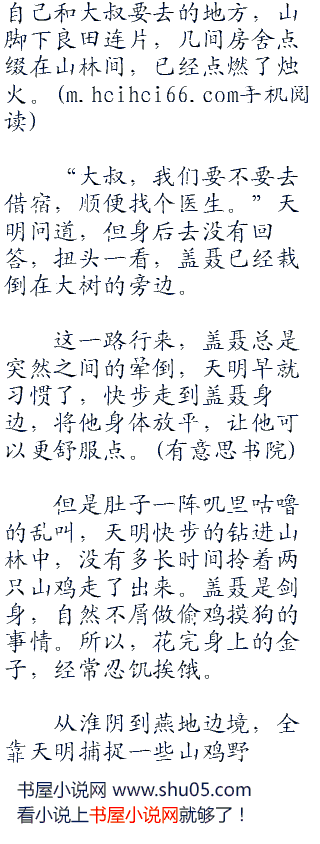 自己和大叔要去的地方，山
脚下良田连片，几间房舍点
缀在山林间，已经点燃了烛
火。(m.hcihci66.com手机阅
读)
“大叔，我们要不要去
借宿，顺便找个医生。”天
明问道，但身后去没有回
答，扭头一看，盖聂已经栽
倒在大树的旁边。
这一路行来，盖聂总是
突然之间的晕倒，天明早就
习惯了，快步走到盖聂身
边，将他身体放平，让他可
以更舒服点。(有意思书院)
但是肚子一阵叽里咕噜
的乱叫，天明快步的钻进山
林中，没有多长时间拎着两
只山鸡走了出来。盖聂是剑
身，自然不屑做偷鸡摸狗的
事情。所以，花完身上的金
子，经常忍饥挨饿。
从淮阴到燕地边境，全
靠天明捕捉一些山鸡野
书屋小说网 www.shu05.com
看小说上书屋小说网就够了！